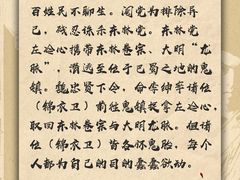 百姓民不聊生。阉党为排除异
己，残忍诛杀东林党。东林党
左沧心携带东林卷宗、大明“龙
脉”，潜逃至位于巴蜀之地的鬼
镇。魏忠贤下令，命李绅率诸位
（锦衣卫）前往鬼镇捉拿左沧心，
取回东林卷宗与大明龙脉。但诸
位（锦衣卫）皆各怀鬼胎，每个
人都为自己的目的蠢蠢欲动。